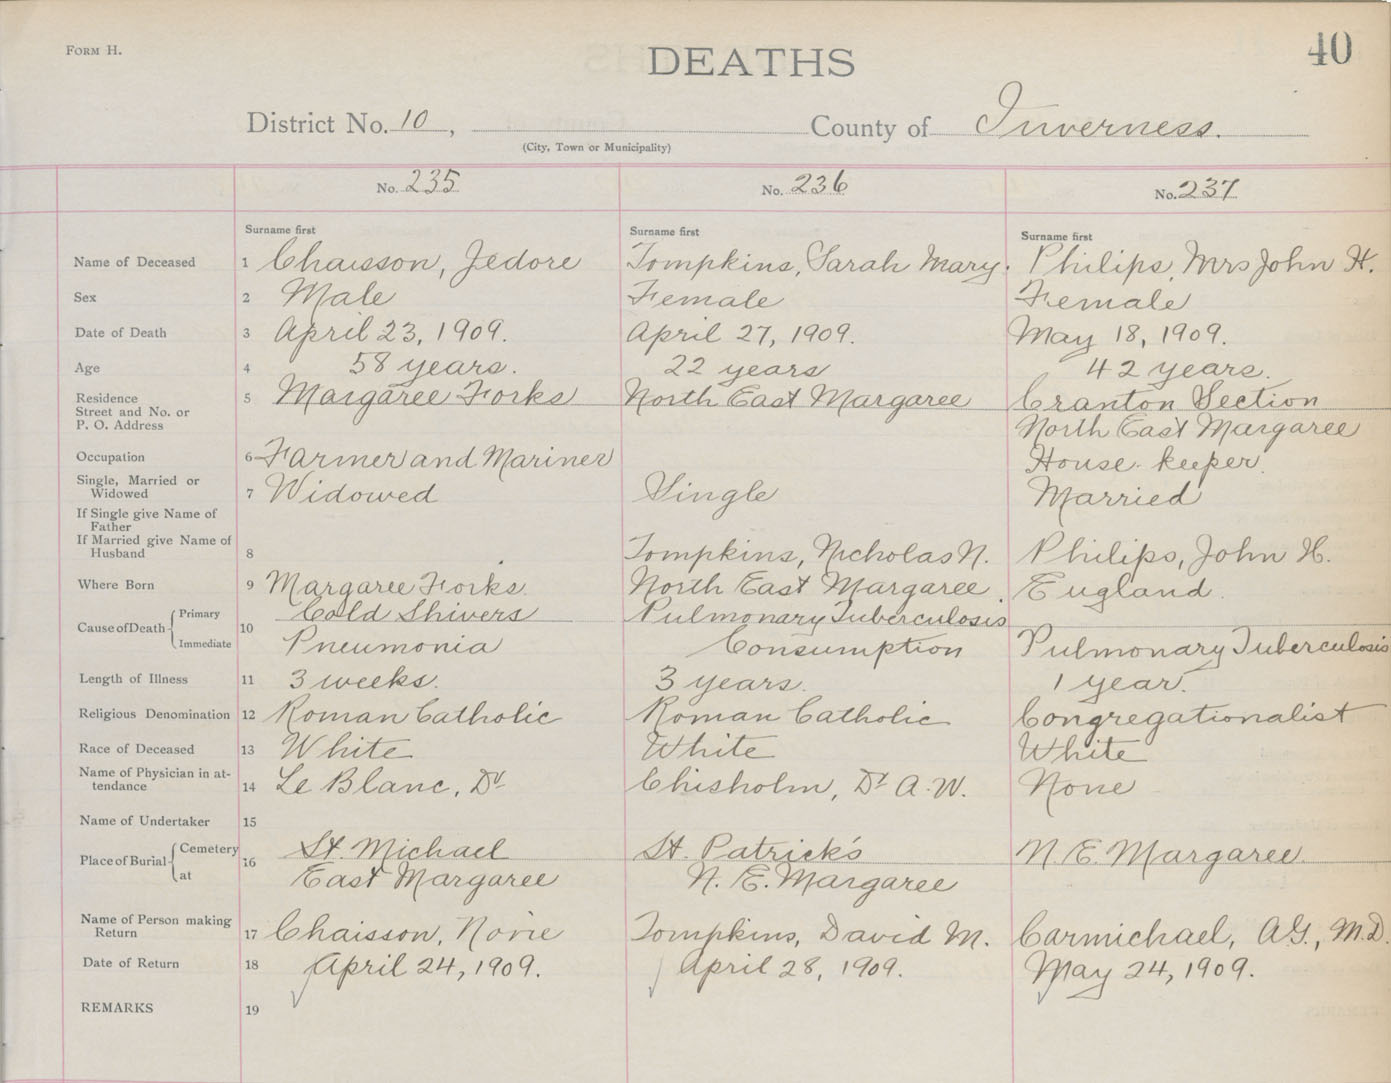 FORM H.
DEATHS
40
District No. 10, County of Inverness.
(City, Town or Municipality)
No. 235 No. 236 No. 237
Surname first Surname first Surname first
Name of Deceased 1 Chaisson, Jedore Tompkins, Sarah Mary. Philips, Mrs John H.
Sex 2 Male Female Female
Date of Death 3 April 23, 1909. April 27, 1909. May 18, 1909.
Age 4 58 years. 22 years 42 years.
Residence 5 Margaree Forks North East Margaree Cranton Section
Street and No. or
P. O. Address North East Margaree
Occupation 6 Farmer and Mariner House-keeper.
Single, Married or
Widowed 7 Widowed Single Married
If Single give Name of
Father
If Married give Name of
Husband 8 Tompkins, Nicholas N. Philips, John H.
Where Born 9 Margaree Forks. North East Margaree. England.
Cause of Death 10 Primary Cold Shivers Pulmonary Tuberculosis
Immediate Pneumonia Consumption Pulmonary Tuberculosis
Length of Illness 11 3 weeks. 3 years. 1 year.
Religious Denomination 12 Roman Catholic Roman Catholic Congregationalist
Race of Deceased 13 White White White
Name of Physician in at-
tendance 14 Le Blanc, Dr Chisholm, Dr A. W. None
Name of Undertaker 15
Place of Burial 16 Cemetery St. Michael St. Patrick's N. E. Margaree.
at East Margaree N. E. Margaree
Name of Person making
Return 17 Chaisson, Tompkins, David M. Carmichael, A.G., M.D.
Date of Return 18 April 24, 1909. April 28, 1909. May 24, 1909.
REMARKS 19